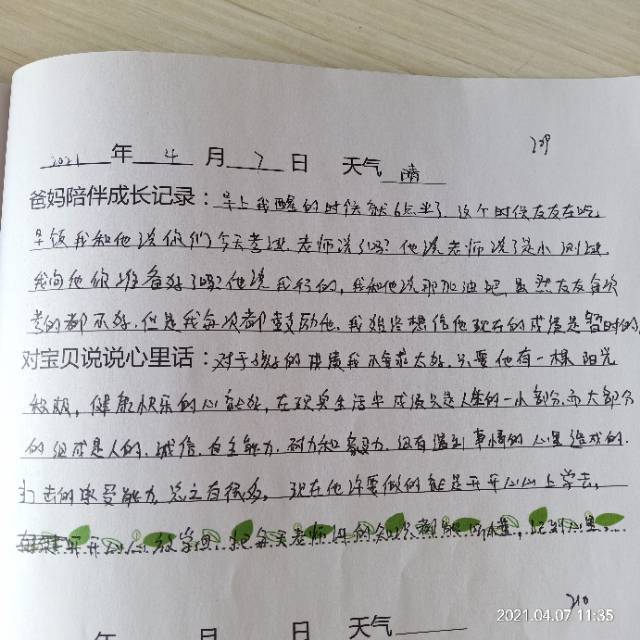 209
2021年4月7日 天气 晴
爸妈陪伴成长记录:早上我醒的时候就6点半了,这个时候友友在吃
早饭,我和他说你们今天考试,老师说了吗?他说老师说了是小测试,
我问他你准备好了吗?他说我行的,我和他说那加油吧,虽然友友每次
考的都不好,但是我每次都鼓励他,我始终相信他现在的成绩是暂时的,
对宝贝说说心里话:对于孩子的成绩我不奢求太好,只要他有一棵阳光
积极,健康快乐的心就好,在现实生活中成绩只是人生的一小部分,而大部分
的组成是人的,诚信,自主能力,耐力和毅力,还有遇到事情的心里造成的,
打击的承受能力,总之有很多,现在他许要做的就是开开心心上学去,
开开心心放学回,把每天老师讲的知识都,记到心里
210
年 月 日 天气
2021.04.07 11:35